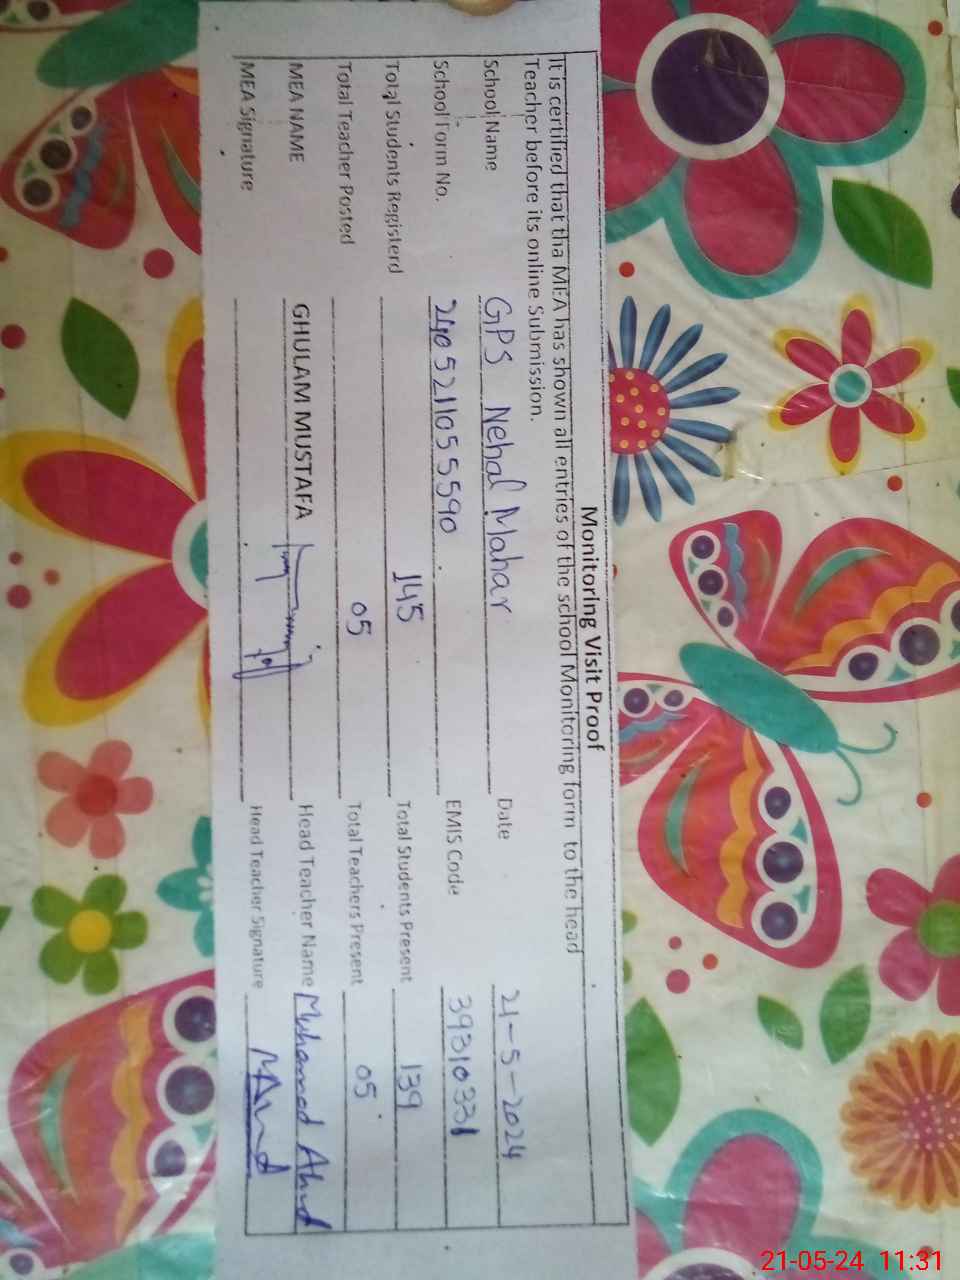 Monitoring Visit Proof
It is certified that tha MEA has shown all entries of the school Monitoring form to the head
Teacher before its online Submission.
School Name GPS Nehal Mahar Date 21-5-2024
School Form No. 2405211055590 EMIS Code 39310331
Total Students Registerd 145 Total Students Present 139
Total Teacher Posted 05 Total Teachers Present 05
MEA NAME GHULAM MUSTAFA Head Teacher Name Muhammad Ahmad
MEA Signature Head Teacher Signature
21-05-24 11:31